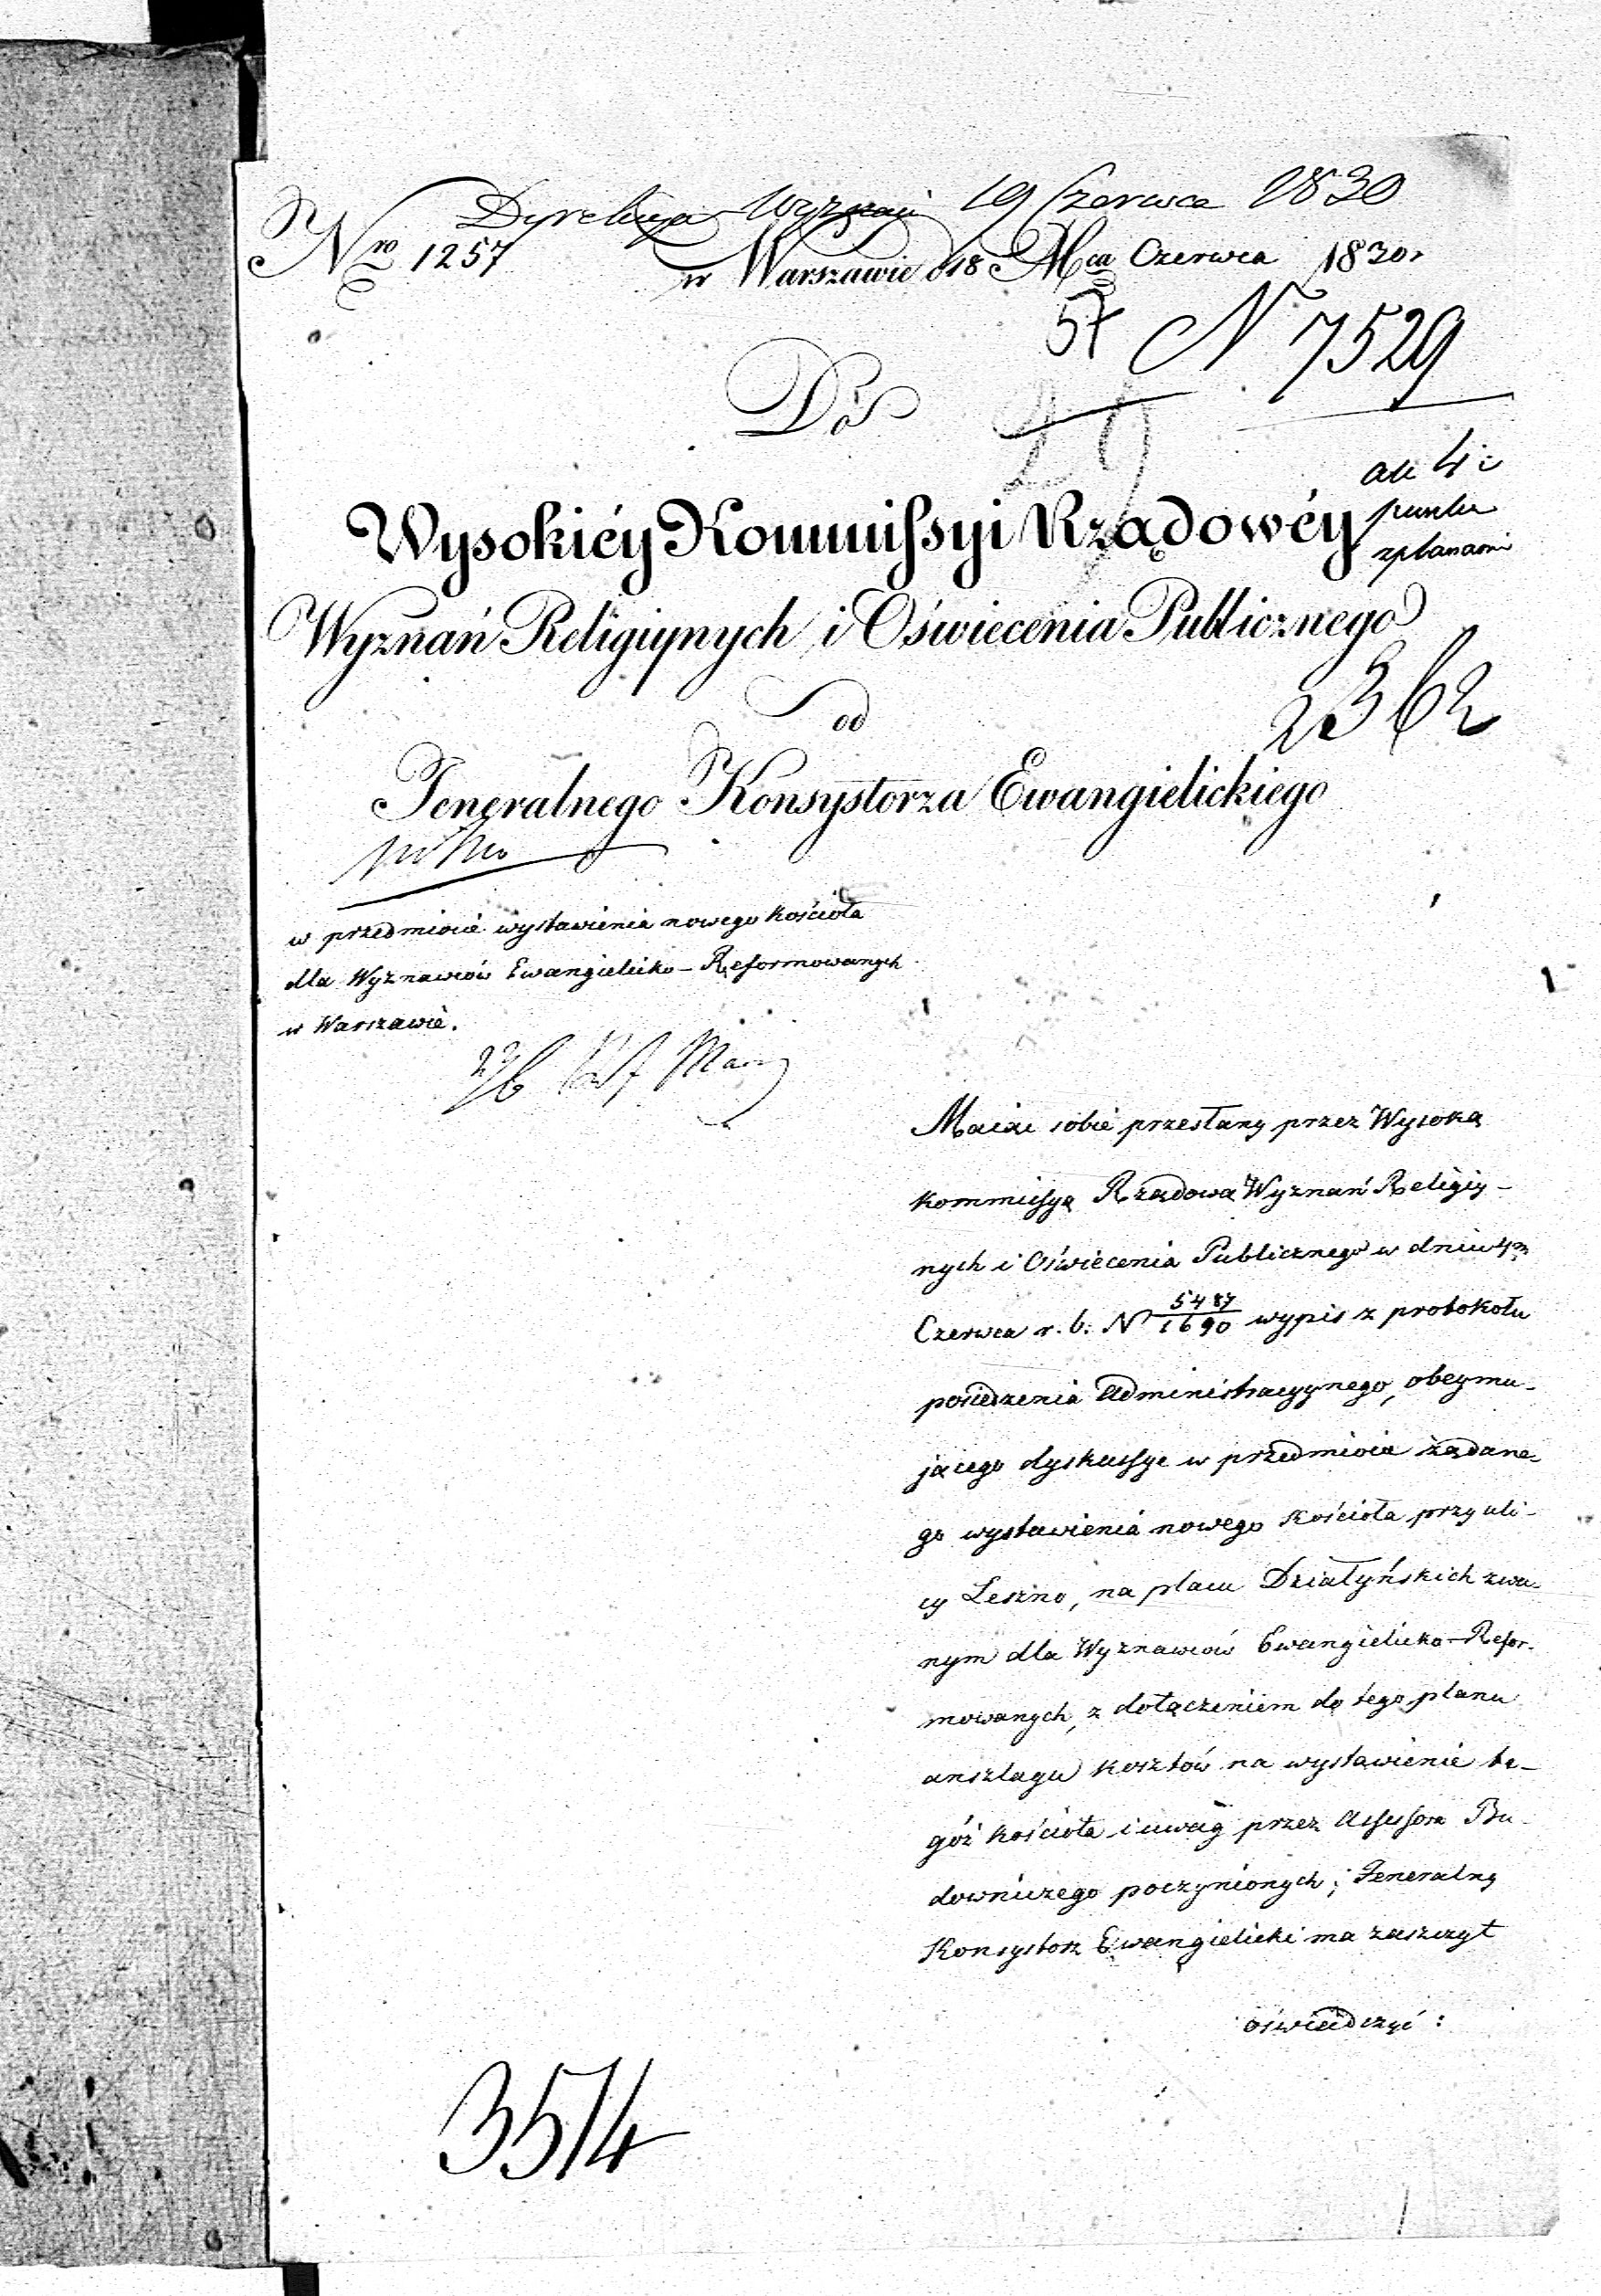 Dyrekcya Wyznań 19 Czerwca 1830
Nro 1257 w Warszawie d 18 Mca Czerwca 1830r
57 N 7529
Do
29
4
Wysokiéy Kommissyi Rządowéy
z planami
Wyznań Religiynych i Oświecenia Publicznego
od
2362
Jeneralnego Konsystorza Ewangielickiego
w przedmiocie wystawienia nowego kościoła
dla Wyznawców Ewangielicko-Reformowanych
w Warszawie.
Maiąc sobie przesłany przez Wysoką
Kommissyą Rządową Wyznań Religiy-
nych i Oświecenia Publicznego w dniu
Czerwca r. b. N 5487/1690 wypis z protokołu
posiedzenia Administracyynego, obeymu-
jącego dyskussye w przedmiocie żądane-
go wystawienia nowego kościoła przy uli-
cy Leszno, na placu Działyńskich zwa-
nym dla Wyznawców Ewangielicko-Refor-
mowanych, z dołączeniem do tego planu
anszlagu kosztów na wystawienie te-
góż kościoła i uwag przez Assessora Bu-
downiczego poczynionych; Jeneralny
Konsystorz Ewangielicki ma zaszczyt
oświadczyć:
3514